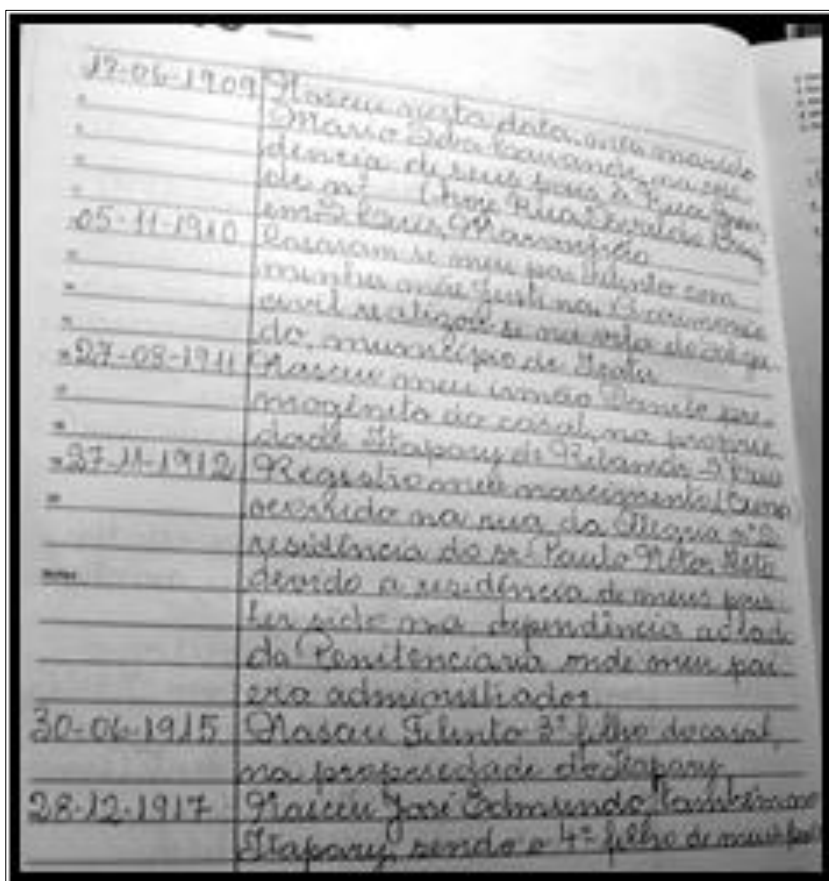 17-06-1909 Nasceu nesta data, meu marido
Mario Silva
dencia de seus pais à Rua
de nº (hoje Rua
em S. Luis, Maranhão
05-11-1910 Casaram se meu pai Filinto com
minha mãe Justina. A cerimonia
civil realizou-se na vila
do município de Icatu
27-08-1911 Nasceu meu irmão Danilo pri-
mogênito do casal, na proprie-
dade Itapary de Ribamar
27-11-1912 Registro meu nascimento
ocorrido na rua da Alegria nº
residência do sr. Paulo Neto
devido a residência de meus pais
ter sido na dependência ao lado
da Penitenciaria onde meu pai
era administrador.
30-06-1915 Nasceu Filinto 3º filho do casal,
na propriedade do Itapary
28-12-1917 Nasceu José Edmundo, também no
Itapary, sendo o 4º filho de meus pais